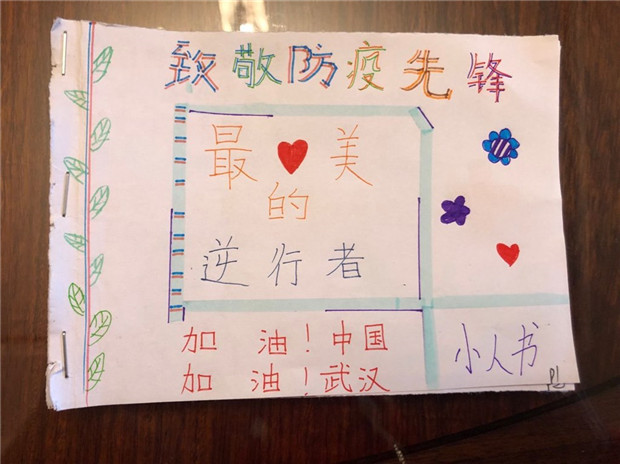 致敬防疫先锋
最美
的
逆行者
加油!中国
加油!武汉
小人书
P1